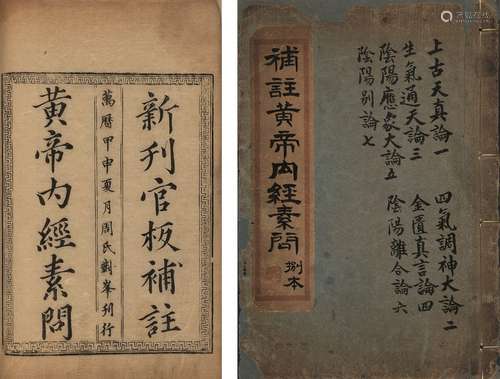 新刊官板補註
萬曆甲申夏月周氏對峯刊行
黄帝内經素問
上古天真論一
四氣調神大論二
生氣通天論三
金匱真言論四
陰陽應象大論五
陰陽離合論六
陰陽别論七
補註黄帝内經素問
捌本